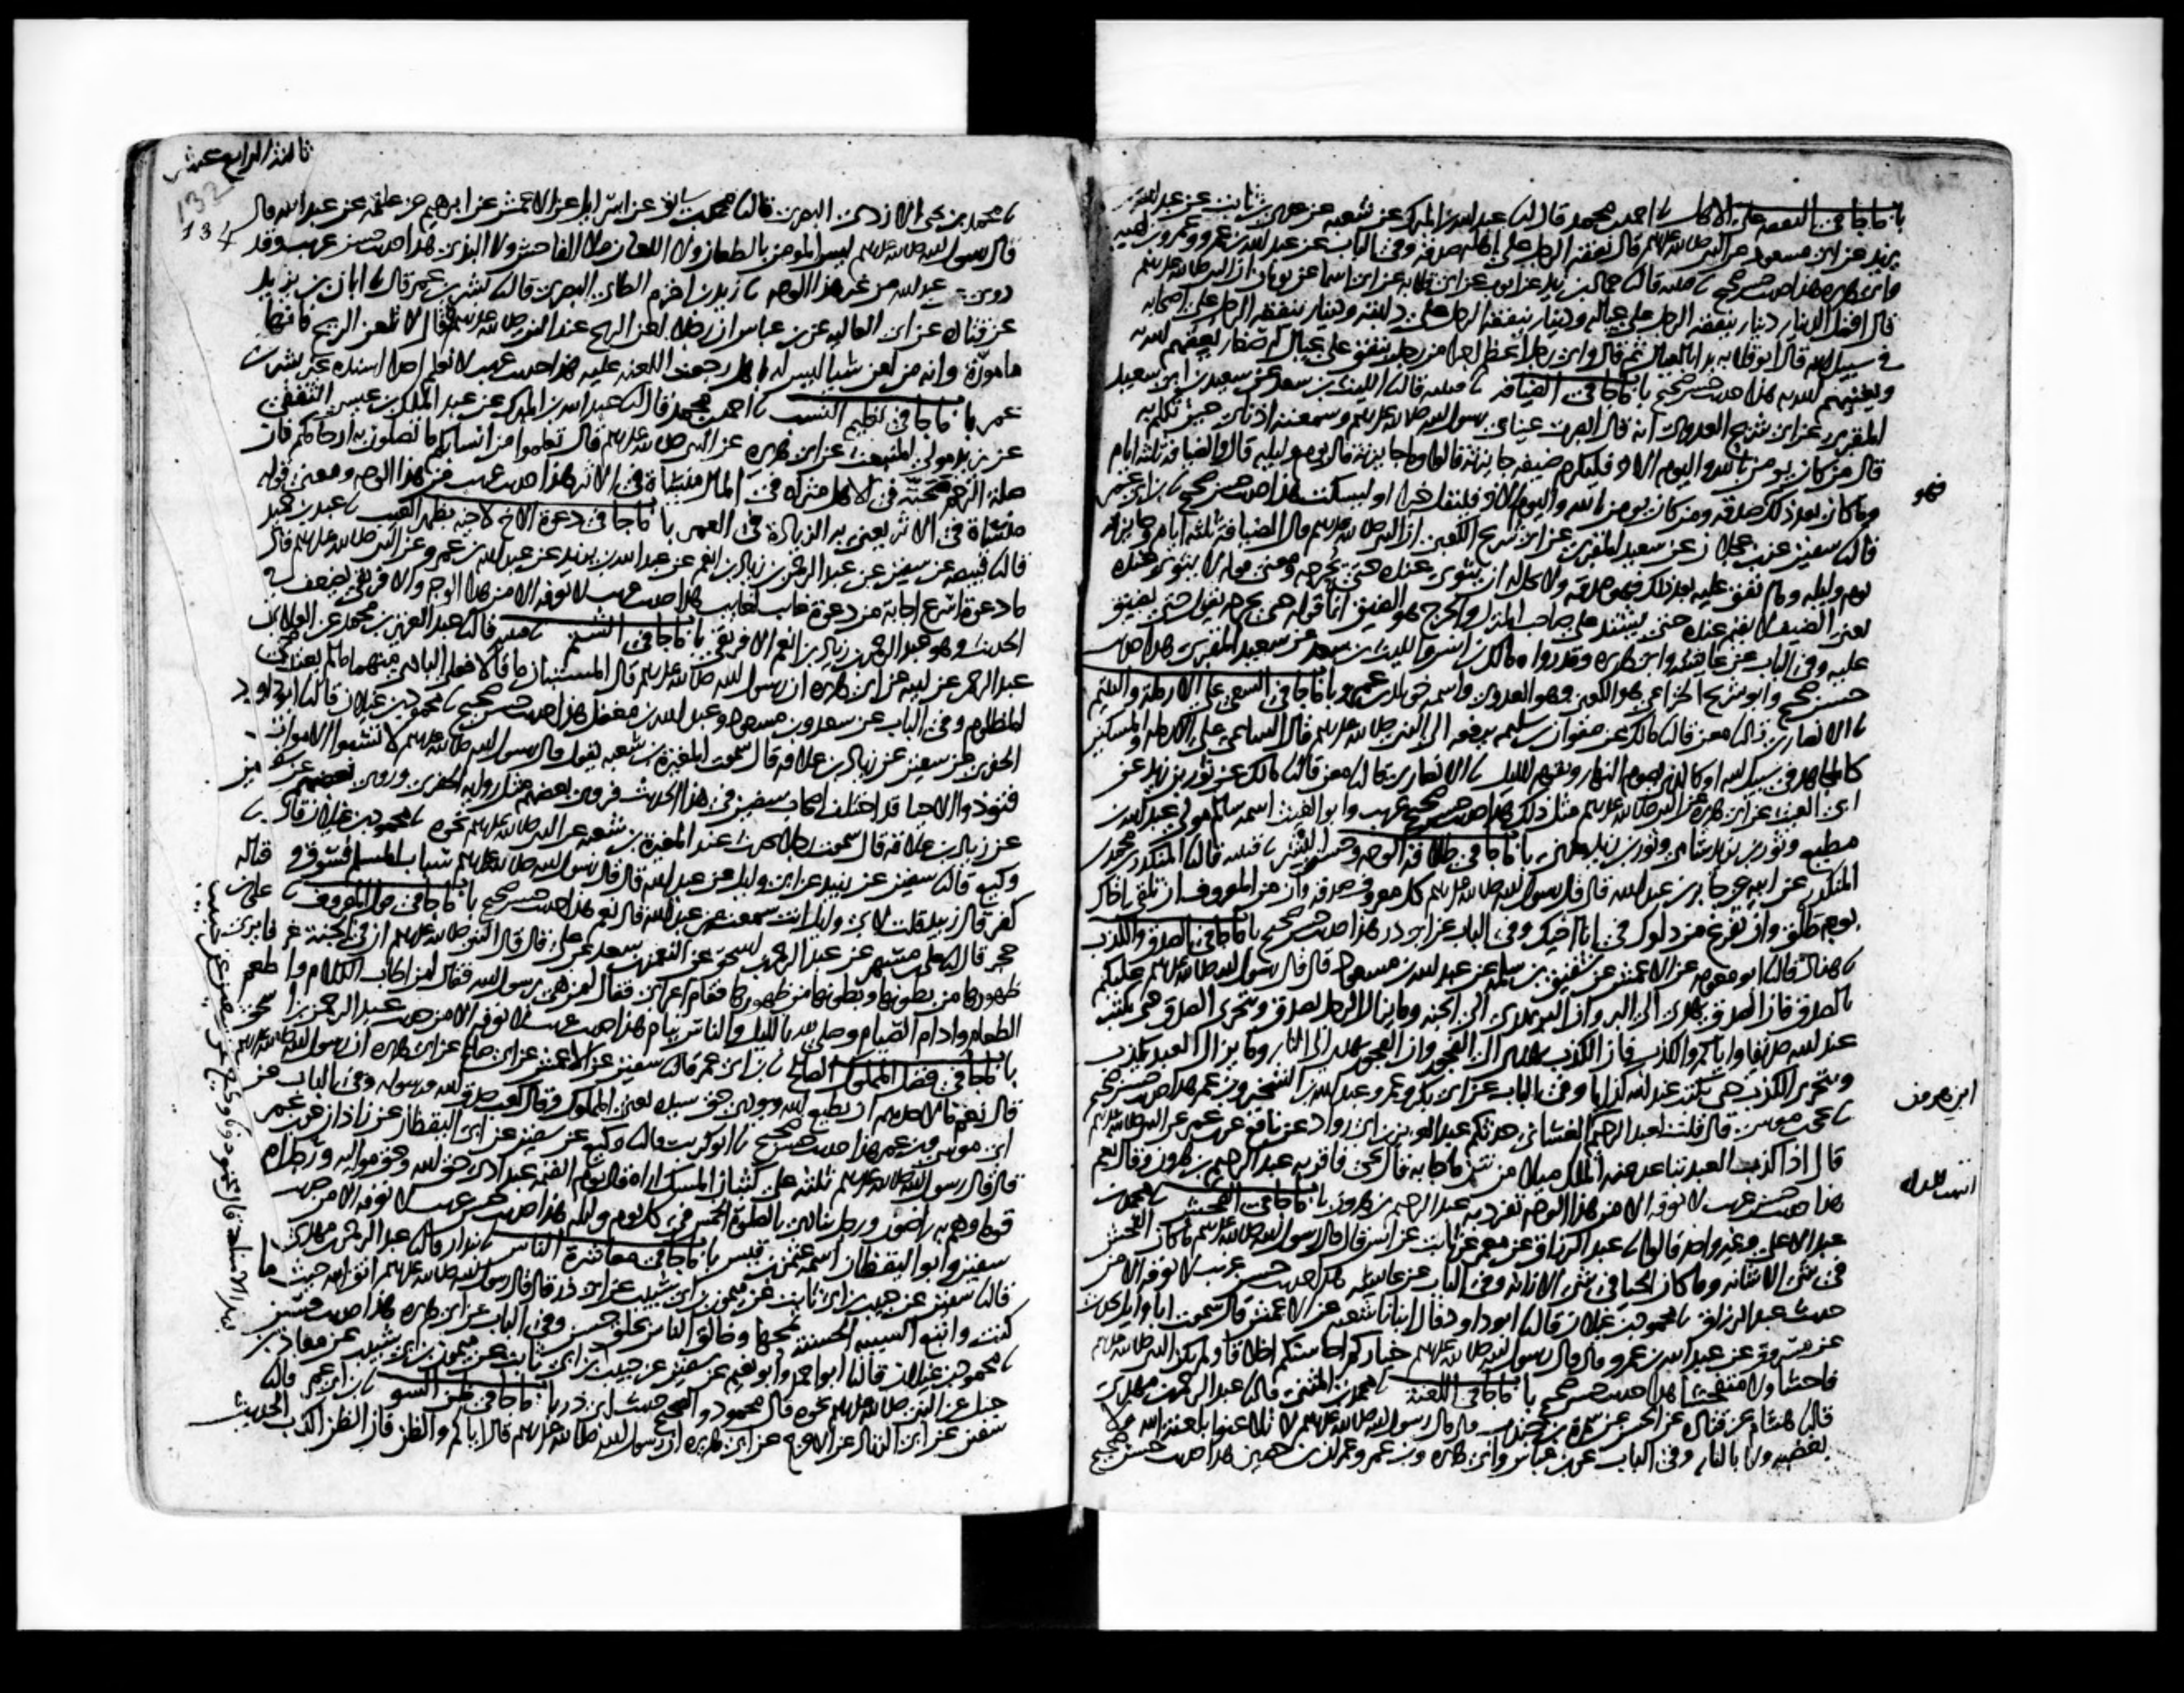 باب ما جا في النفقة على الاهل نا احمد بن محمد قال نا عبد الله بن المبرك عن شعبه عن عدي بن ثابت عن عبد الله بن
يزيد عن ابن مسعود عن النبي صلى الله عليه وسلم قال نفقة الرجل على اهله صدقة وفي الباب عن عبد الله بن عمرو وعمرو بن اميه
وابي هريره هذا حديث حسن صحيح نا قتيبه قال نا حماد بن زيد عن ايوب عن ابي قلابه عن ابي اسما عن ثوبان ان النبي صلى الله عليه وسلم
قال افضل الدينار دينار ينفقه الرجل على عياله ودينار ينفقه الرجل على دابته ودينار ينفقه الرجل على اصحابه
في سبيل الله قال ابو قلابه بدا بالعيال ثم قال واي رجل اعظم اجرا من رجل ينفق على عيال له صغار يعفهم الله به
ويغنيهم الله به هذا حديث حسن صحيح باب ما جا في الضيافه نا قتيبه قال نا الليث بن سعد عن سعيد بن ابي سعيد
المقبري عن ابي شريح العدوي انه قال ابصرت عيناي رسول الله صلى الله عليه وسلم وسمعته اذناي حين تكلم به
قال من كان يومن بالله واليوم الاخر فليكرم ضيفه جايزته قالوا وما جايزته قال يوم وليله قال والضيافة ثلثه ايام
وما كان بعد ذلك صدقه ومن كان يومن بالله واليوم الاخر فليقل خيرا او ليسكت هذا حديث حسن صحيح نا ابن ابي عمر
فهو
قال نا سفين عن بن عجلان عن سعيد المقبري عن ابي شريح الكعبي ان النبي صلى الله عليه وسلم قال الضيافة ثلثه ايام وجايزته
يوم وليله وما انفق عليه بعد ذلك فهو صدقه ولا يحل له ان يثوي عنده حتى يحرجه ومعنى قوله لا يثوي عنده
يعني الضيف لا يقيم عنده حتى يشتد على صاحب المنزل والحرج هو الضيق انما قوله حتى يحرجه يقول حتى يضيق
عليه وفي الباب عن عايشه وابي هريره وقد رواه مالك بن انس والليث بن سعد عن سعيد المقبري هذا حديث
حسن صحيح وابو شريح الخزاعي هو الكعبي وهو العدوي واسمه خويلد بن عمرو باب ما جا في السعي على الارمله واليتيم
نا الانصاري قال نا معن قال نا مالك عن صفوان بن سليم يرفعه الى النبي صلى الله عليه وسلم قال الساعي على الارمله والمسكين
كالمجاهد في سبيل الله او كالذي يصوم النهار ويقوم الليل نا الانصاري قال نا معن قال نا مالك عن ثور بن زيد عن
ابي الغيث عن ابي هريره عن النبي صلى الله عليه وسلم مثل ذلك هذا حديث حسن صحيح غريب وابو الغيث اسمه سالم مولى عبد الله بن
مطيع وثور بن يزيد شامي وثور بن زيد مديني باب ما جا في طلاقة الوجه وحسن البشر نا قتيبه قال نا المنكدر بن محمد بن
المنكدر عن ابيه عن جابر بن عبد الله قال قال رسول الله صلى الله عليه وسلم كل معروف صدقه وان من المعروف ان تلقى اخاك
بوجه طلق وان تفرغ من دلوك في انا اخيك وفي الباب عن ابي ذر هذا حديث حسن صحيح باب ما جا في الصدق والكذب
نا هناد قال نا ابو معويه عن الاعمش عن شقيق بن سلمه عن عبد الله بن مسعود قال قال رسول الله صلى الله عليه وسلم عليكم
بالصدق فان الصدق يهدي الى البر وان البر يهدي الى الجنه وما يزال الرجل يصدق ويتحرى الصدق حتى يكتب
عند الله صديقا واياكم والكذب فان الكذب يهدي الى الفجور وان الفجور يهدي الى النار وما يزال العبد يكذب
ويتحرى الكذب حتى يكتب عند الله كذابا وفي الباب عن ابي بكر وعمر وعبد الله بن الشخير وبن عمر هذا حديث حسن صحيح
ابن هرون
نا يحيى بن موسى قال قلت لعبد الرحيم الغساني حدثكم عبد العزيز بن ابي رواد عن نافع عن بن عمر عن النبي صلى الله عليه وسلم
قال اذا كذب العبد تباعد عنه الملك ميلا من نتن ما جا به قال يحيى فاقر به عبد الرحيم بن هرون وقال نعم
هذا حديث حسن غريب لا نعرفه الا من هذا الوجه تفرد به عبد الرحيم بن هرون باب ما جا في الفحش نا محمد بن
عبد الاعلى وغير واحد قالوا نا عبد الرزاق عن معمر عن ثابت عن انس قال قال رسول الله صلى الله عليه وسلم ما كان الفحش
في شي الا شانه وما كان الحيا في شي الا زانه وفي الباب عن عايشه هذا حديث حسن غريب لا نعرفه الا من
حديث عبد الرزاق نا محمود بن غيلان قال نا ابو داود قال انبانا شعبه عن الاعمش قال سمعت ابا وايل يحدث
عن مسروق عن عبد الله بن عمرو قال قال رسول الله صلى الله عليه وسلم خياركم احاسنكم اخلاقا ولم يكن النبي صلى الله عليه وسلم
فاحشا ولا متفحشا هذا حديث حسن صحيح باب ما جا في اللعنة نا محمد بن المثنى قال نا عبد الرحمن بن مهدي
قال نا هشام عن قتاده عن الحسن عن سمرة بن جندب قال قال رسول الله صلى الله عليه وسلم لا تلاعنوا بلعنة الله ولا
بغضبه ولا بالنار وفي الباب عن بن عباس وابي هريره وبن عمر وعمران بن حصين هذا حديث حسن صحيح
ثالثة الرابع عشر
132
134
نا محمد بن يحيى الازدي البصري قال نا محمد بن سابق عن اسرائيل عن الاعمش عن ابرهيم عن علقمه عن عبد الله قال
قال رسول الله صلى الله عليه وسلم ليس المومن بالطعان ولا اللعان ولا الفاحش ولا البذي هذا حديث حسن غريب وقد
روي عن عبد الله من غير هذا الوجه نا زيد بن اخزم الطائي البصري قال نا بشر بن عمر قال نا ابان بن يزيد
عن قتاده عن ابي العاليه عن بن عباس ان رجلا لعن الريح عند النبي صلى الله عليه وسلم فقال لا تلعن الريح فانها
مامورة وانه من لعن شيا ليس له باهل رجعت اللعنه عليه هذا حديث غريب لا نعلم احدا اسنده غير بشر بن
عمر باب ما جا في تعليم النسب نا احمد بن محمد قال نا عبد الله بن المبرك عن عبد الملك بن عيسى الثقفي
عن يزيد مولى المنبعث عن ابي هريره عن النبي صلى الله عليه وسلم قال تعلموا من انسابكم ما تصلون به ارحامكم فان
صلة الرحم محبة في الاهل مثراة في المال منساة في الاثر هذا حديث غريب من هذا الوجه ومعنى قوله
منساة في الاثر يعني به الزيادة في العمر باب ما جا في دعوة الاخ لاخيه بظهر الغيب نا عبد بن حميد
قال نا قبيصه عن سفين عن عبد الرحمن بن زياد بن انعم عن عبد الله بن يزيد عن عبد الله بن عمرو عن النبي صلى الله عليه وسلم قال
ما دعوة اسرع اجابة من دعوة غايب لغايب هذا حديث غريب لا نعرفه الا من هذا الوجه والافريقي يضعف في
الحديث وهو عبد الرحمن بن زياد بن انعم الافريقي باب ما جا في الشتم نا قتيبه قال نا عبد العزيز بن محمد عن العلا بن
عبد الرحمن عن ابيه عن ابي هريره ان رسول الله صلى الله عليه وسلم قال المستبان ما قالا فعلى البادي منهما ما لم يعتدي
المظلوم وفي الباب عن سعد وبن مسعود وعبد الله بن مغفل هذا حديث حسن صحيح نا محمود بن غيلان قال نا ابو داود
الحفري عن سفين عن زياد بن علاقه قال سمعت المغيره بن شعبه يقول قال رسول الله صلى الله عليه وسلم لا تسبوا الاموات
فتوذوا الاحيا قد اختلف اصحاب سفين في هذا الحديث فروى بعضهم مثل رواية الحفري وروى بعضهم عن سفين
عن زياد بن علاقه قال سمعت رجلا يحدث عند المغيرة بن شعبه عن النبي صلى الله عليه وسلم نحوه نا محمود بن غيلان قال نا
وكيع قال نا سفين عن زبيد عن ابي وايل عن عبد الله قال قال رسول الله صلى الله عليه وسلم سباب المسلم فسوق وقتاله
كفر قال زبيد قلت لابي وايل انت سمعته من عبد الله قال نعم هذا حديث حسن صحيح باب ما جا في قول المعروف نا علي بن
حجر قال نا علي بن مسهر عن عبد الرحمن بن اسحق عن النعمن بن سعد عن علي قال قال النبي صلى الله عليه وسلم ان في الجنة غرفا يرى
ظهورها من بطونها وبطونها من ظهورها فقام اعرابي فقال لمن هي يرسول الله فقال لمن اطاب الكلام واطعم
الطعام وادام الصيام وصلى لله بالليل والناس نيام هذا حديث غريب لا نعرفه الا من حديث عبد الرحمن بن اسحق
باب ما جا في فضل المملوك الصالح نا بن ابي عمر قال نا سفين عن الاعمش عن ابي صالح عن ابي هريره ان رسول الله صلى الله عليه وسلم
قال نعم ما لاحدهم ان يطيع الله ويودي حق سيده يعني المملوك وقال كعب صدق الله ورسوله وفي الباب عن
ابي موسى وبن عمر هذا حديث حسن صحيح نا ابو كريب قال نا وكيع عن سفين عن ابي اليقظان عن زاذان عن بن عمر
قال قال رسول الله صلى الله عليه وسلم ثلثه على كثبان المسك اراه قال يوم القيمه عبد ادى حق الله وحق مواليه ورجل ام
قوما وهم به راضون ورجل ينادي بالصلوات الخمس في كل يوم وليله هذا حديث حسن غريب لا نعرفه الا من حديث
سفين وابو اليقظان اسمه عثمن بن قيس باب ما جا في معاشرة الناس نا بندار قال نا عبد الرحمن بن مهدي
قال نا سفين عن حبيب بن ابي ثابت عن ميمون بن ابي شبيب عن ابي ذر قال قال رسول الله صلى الله عليه وسلم اتق الله حيث ما
كنت واتبع السييه الحسنة تمحها وخالق الناس بخلق حسن وفي الباب عن ابي هريره هذا حديث حسن
نا محمود بن غيلان قال نا ابو احمد وابو نعيم عن سفين عن حبيب بن ابي ثابت عن ميمون بن ابي شبيب عن معاذ بن
جبل عن النبي صلى الله عليه وسلم نحوه قال محمود والصحيح حديث ابي ذر باب ما جا في ظن السو نا بن ابي عمر قال نا
سفين عن ابي الزناد عن الاعرج عن ابي هريره ان رسول الله صلى الله عليه وسلم قال اياكم والظن فان الظن اكذب الحديث